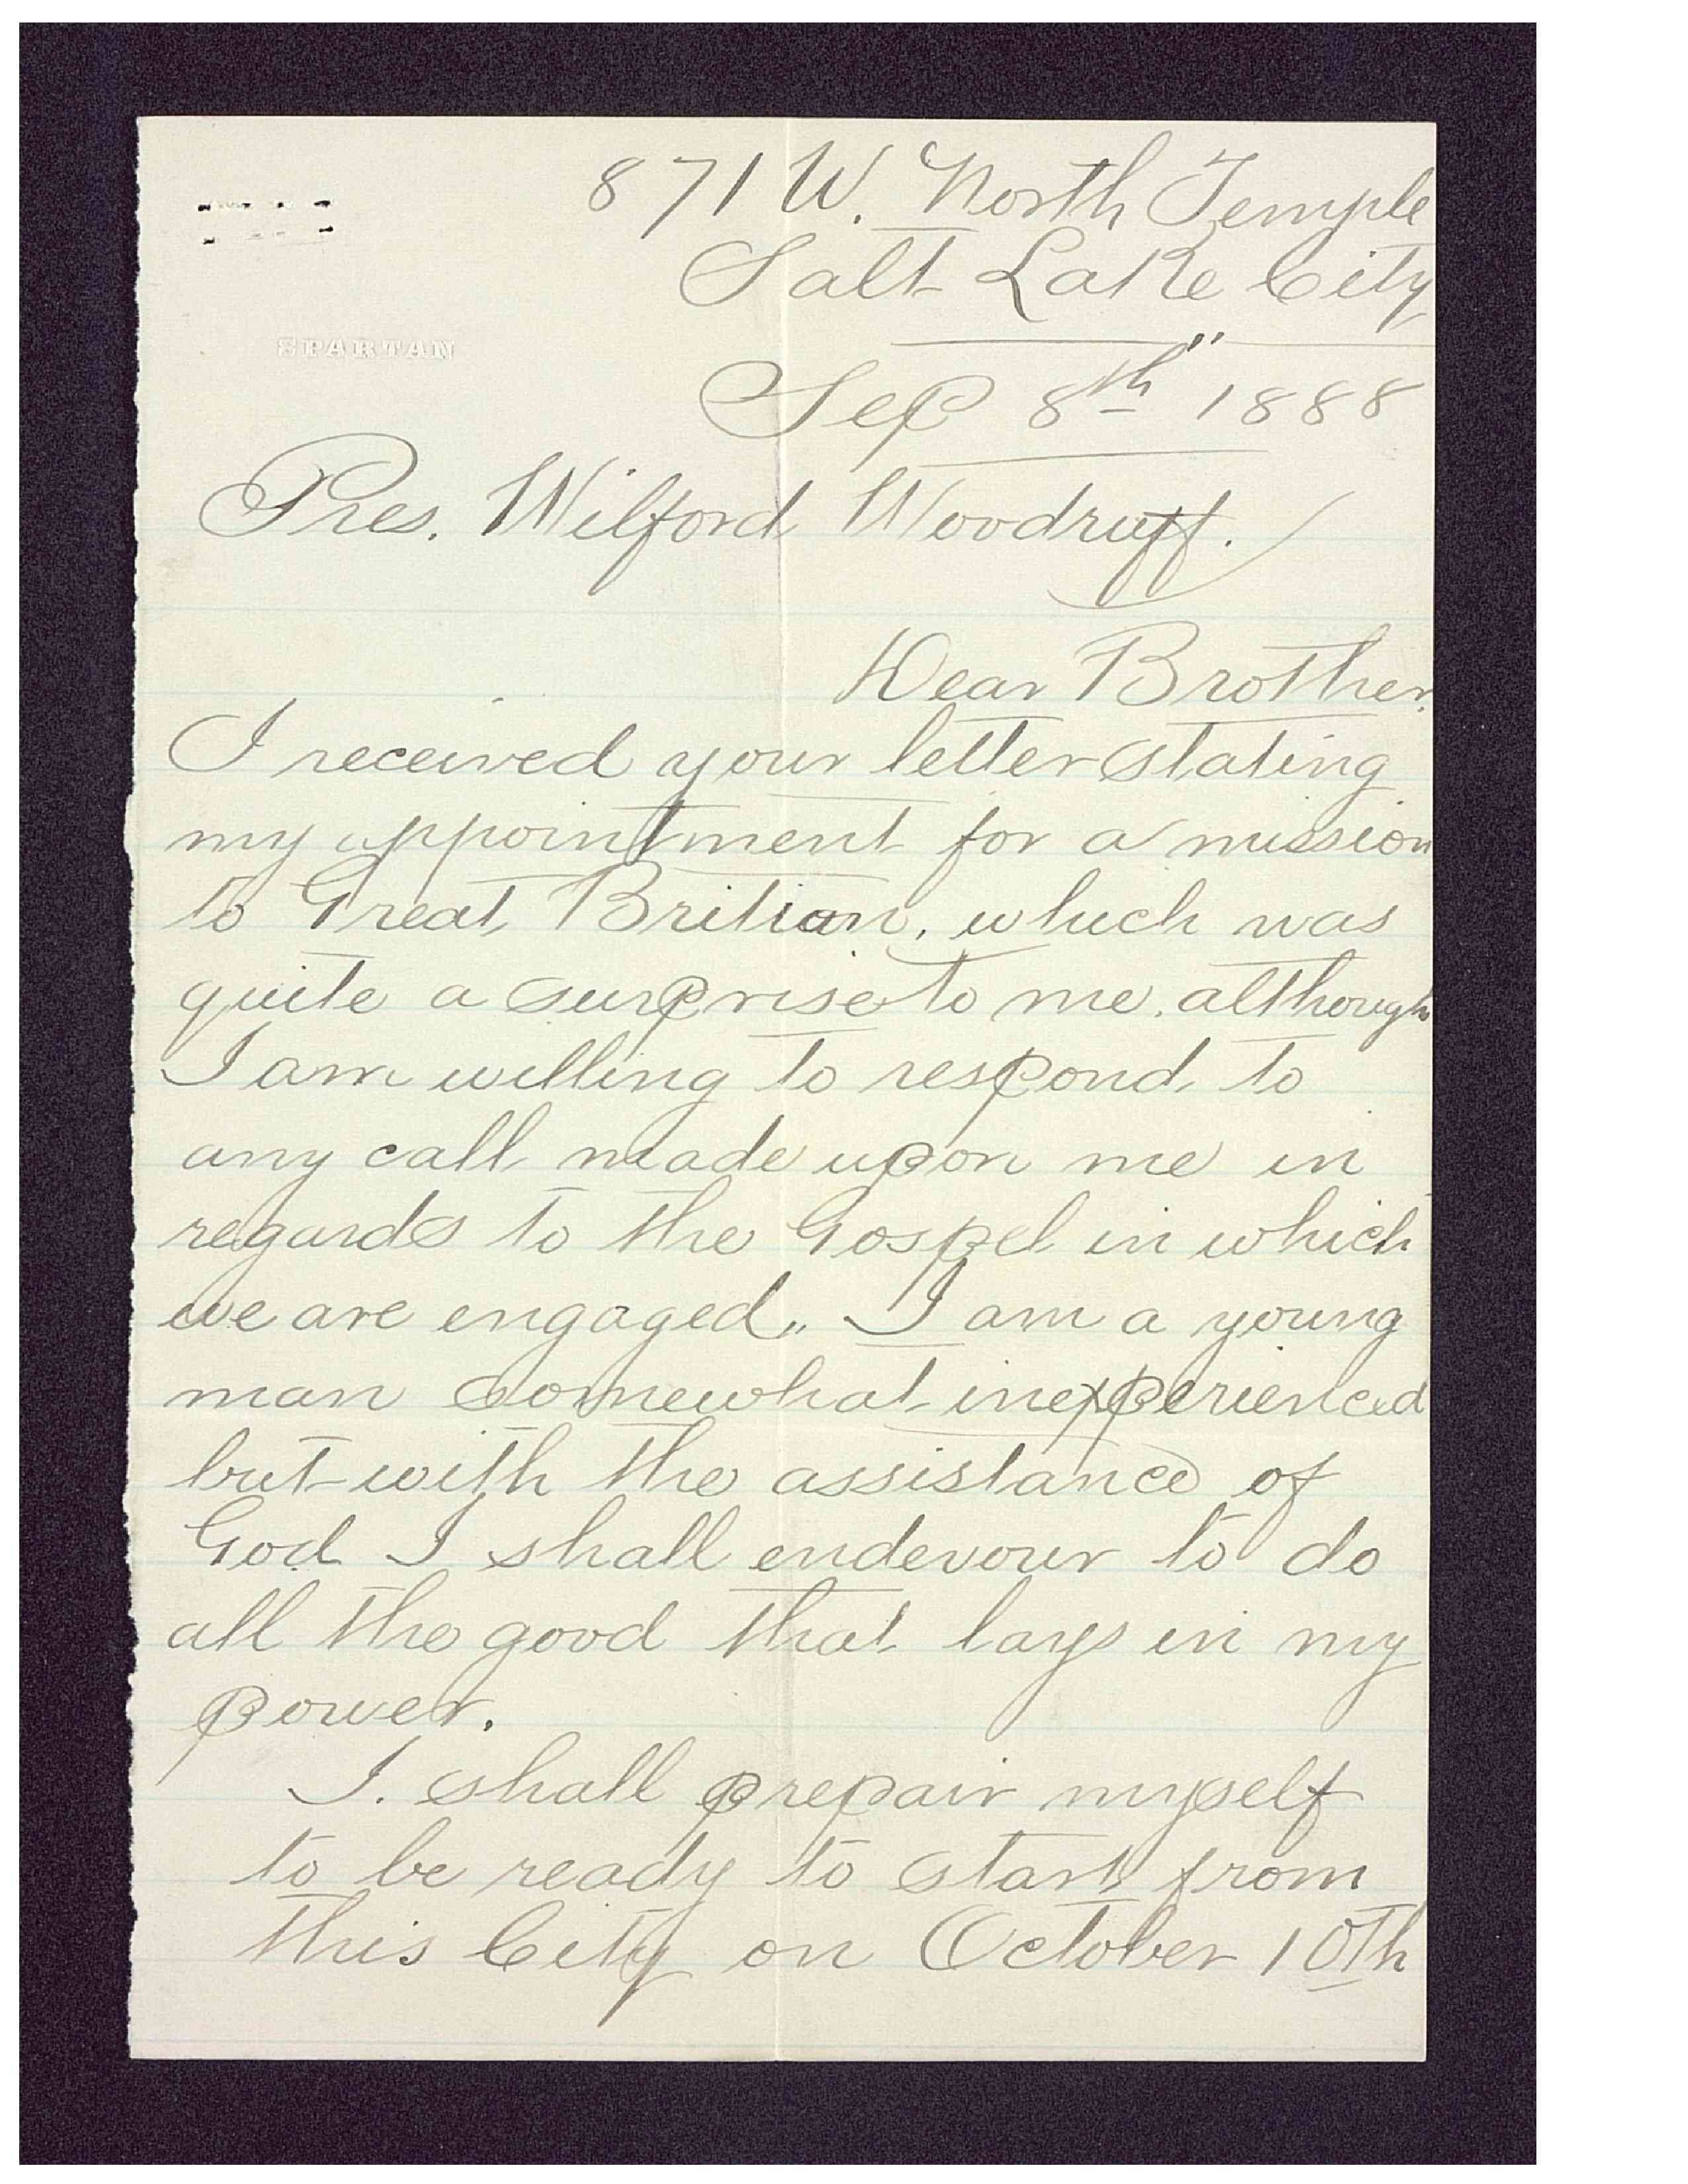 871 W. North Temple
Salt Lake City
SPARTAN
Sep 8th" 1888
Pres. Wilford Woodruff.
Dear Brother.
I received your letter stating
my appointment for a mission
to Great Britian, which was
quite a surprise to me, although
I am willing to respond to
any call made upon me in
regards to the Gospel in which
we are engaged,. I am a young
man somewhat inexperienced
but with the assistance of
God I shall endevour to do
all the good that lays in my
power.
I. shall prepair myself
to be ready to start from
this City on October 10th